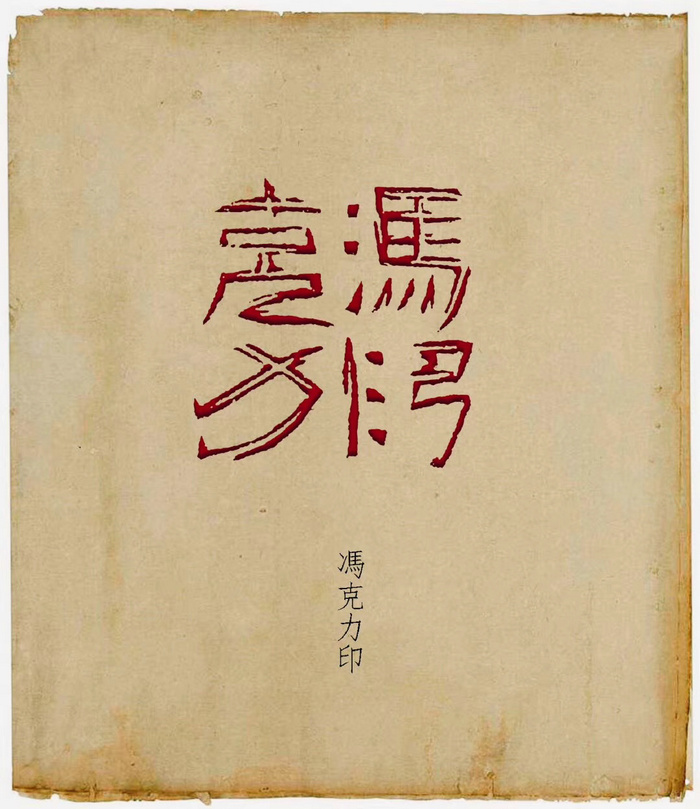 馮克
力印
馮克力印